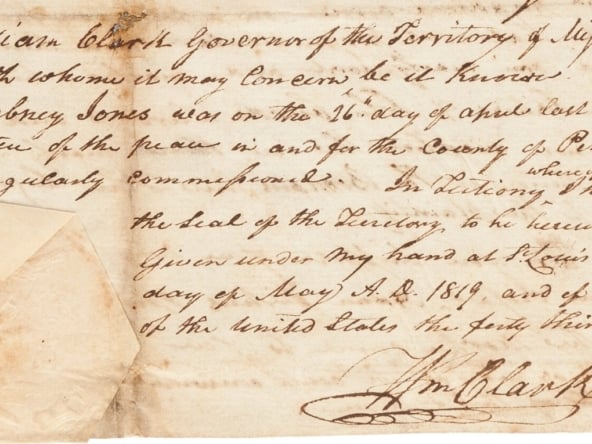 iam Clark Governor of the Territory of Miss
th whome it may Concern be it Known
abney Jones was on the 26th day of april last
tice of the peace in and for the County of Pe
gularly commissioned. In Testiony where
the Seal of the Territory to be here
Given under my hand at St. Louis
day of May A.D. 1819, and of
of the United States the forty thir
Wm Clark